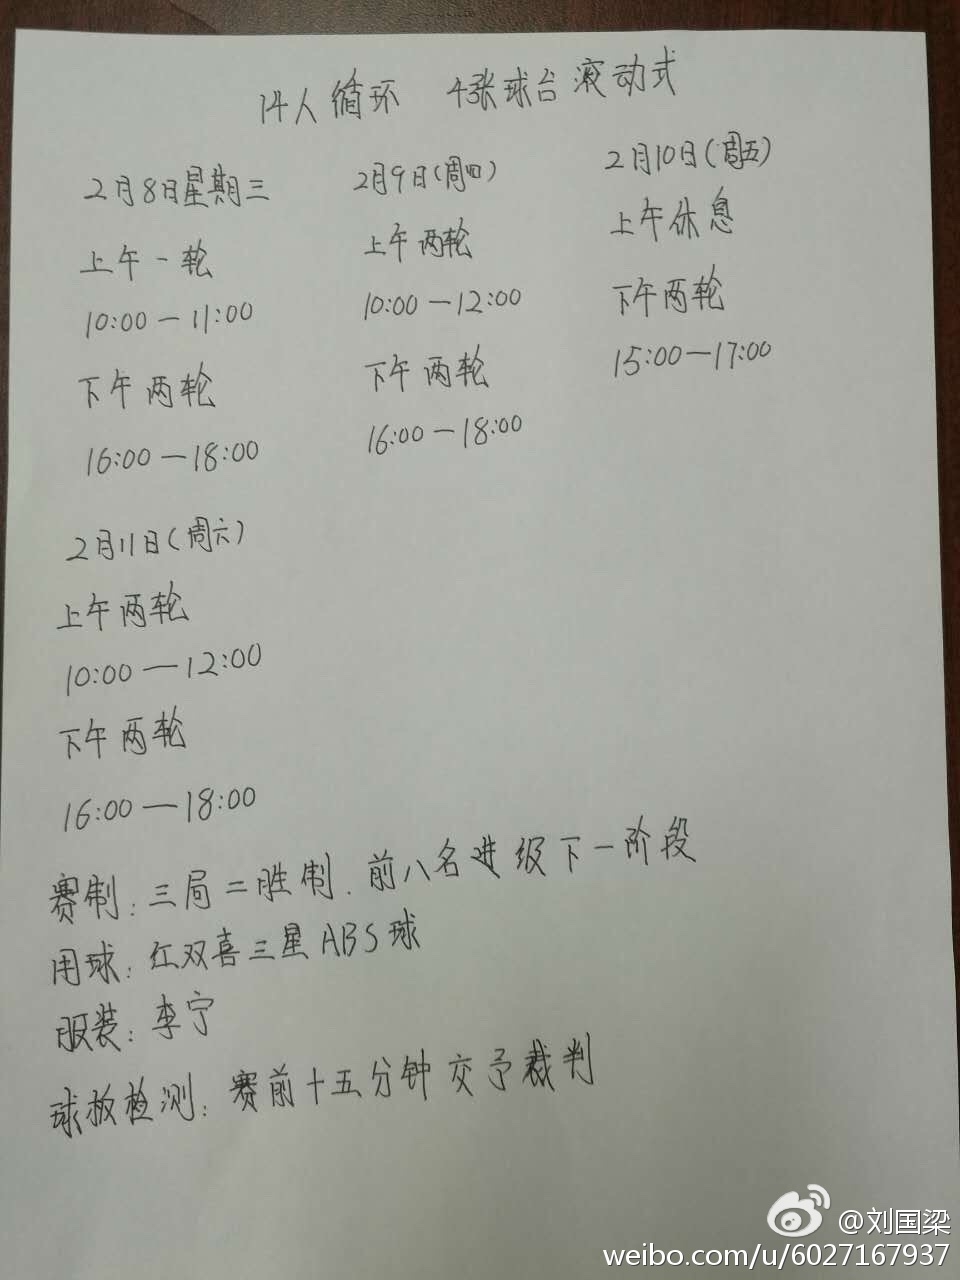 14人循环 4张球台滚动式
2月8日星期三
上午一轮
10:00—11:00
下午两轮
16:00—18:00
2月9日(周四)
上午两轮
10:00—12:00
下午两轮
16:00—18:00
2月10日(周五)
上午休息
下午两轮
15:00—17:00
2月11日(周六)
上午两轮
10:00—12:00
下午两轮
16:00—18:00
赛制:三局二胜制.前八名进级下一阶段
用球:红双喜三星ABS球
服装:李宁
球板检测:赛前十五分钟交予裁判
@刘国梁
weibo.com/u/6027167937